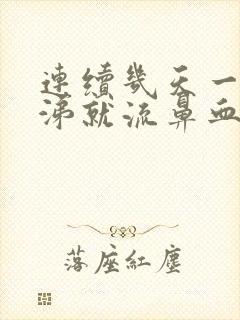 連續幾天一
涕就流鼻血
落座紅塵